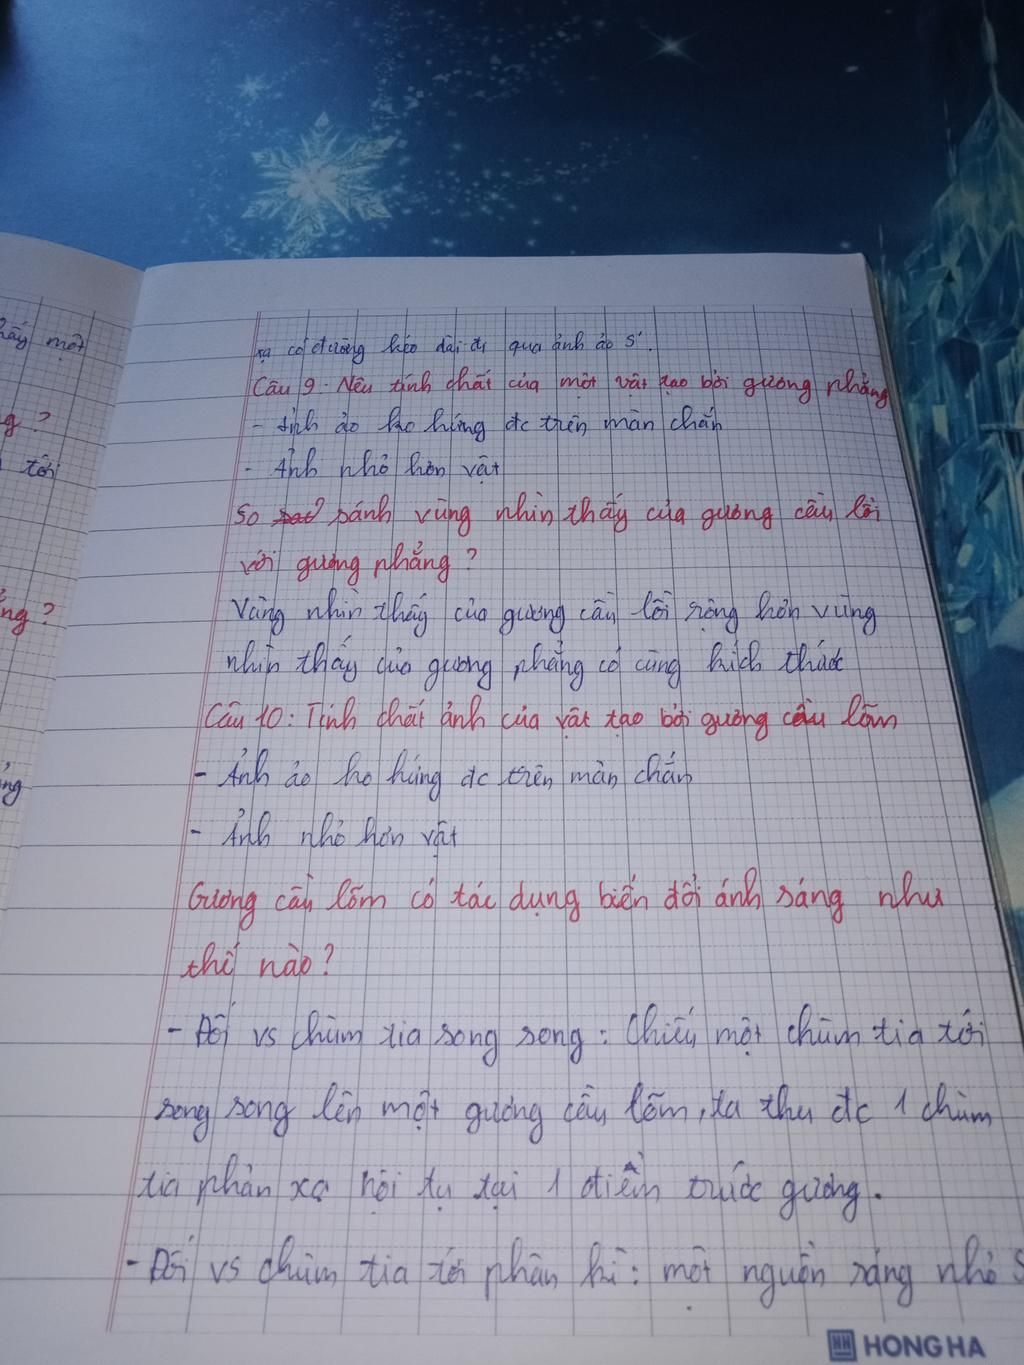 hấy một
g ?
tới
ng ?
ng
xạ có đường kéo dài đi qua ảnh ảo S'.
Câu 9. Nêu tính chất của một vật tạo bởi gương phẳng
- Ảnh ảo ko hứng đc trên màn chắn
- Ảnh nhỏ hơn vật
So sánh vùng nhìn thấy của gương cầu lồi
với gương phẳng ?
Vùng nhìn thấy của gương cầu lồi rộng hơn vùng
nhìn thấy của gương phẳng có cùng kích thước
Câu 10: Tính chất ảnh của vật tạo bởi gương cầu lõm
- Ảnh ảo ko hứng đc trên màn chắn
- Ảnh nhỏ hơn vật
Gương cầu lõm có tác dụng biến đổi ánh sáng như
thế nào?
- Đối vs chùm tia song song : Chiếu một chùm tia tới
song song lên một gương cầu lõm, ta thu đc 1 chùm
tia phản xạ hội tụ tại 1 điểm trước gương.
- Đối vs chùm tia tới phân kì : một nguồn sáng nhỏ S
HONG HA